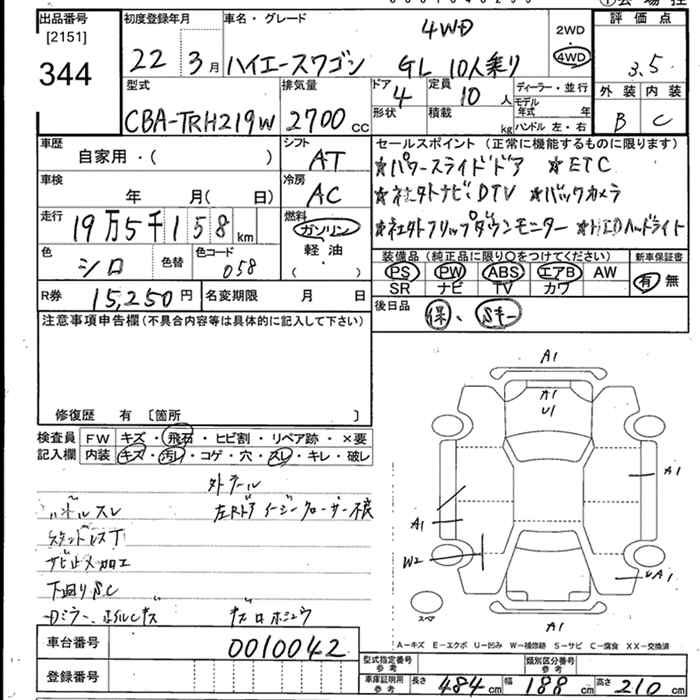 出品番号 [2151] 344
初度登録年月 22 3月
車名・グレード ハイエースワゴン GL 10人乗り 4WD
2WD 4WD
評価点 3.5
外装 B 内装 C
型式 CBA-TRH219W
排気量 2700 cc
ドア 4 形状
定員 10人 積載 kg
ディーラー・並行
モデル年式 年
ハンドル 左・右
車歴 自家用・( )
シフト AT
車検 年 月( 日)
冷房 AC
走行 19万5千158 km
燃料 ガソリン 軽油 ( ・ )
色 シロ 色替 色コード 058
R券 15,250円 名変期限 月 日
セールスポイント (正常に機能するものに限ります)
★パワースライドドア ★ETC
★社外ナビ・DTV ★バックカメラ
★社外フリップダウンモニター ★HIDヘッドライト
装備品 (純正品に限り○をつけてください) 新車保証書
PS PW ABS エアB AW 有 無
SR ナビ TV カワ
後日品 保、Sキー
注意事項申告欄(不具合内容等は具体的に記入して下さい)
修復歴 有 〔箇所 〕
検査員記入欄 FW キズ・飛石・ヒビ割・リペア跡・×要
内装 キズ・汚レ・コゲ・穴・スレ・キレ・破レ
スレ
左Rドア イージークローザー不良
サビ止メ加工
下回りS.C
キズ
車台番号 0010042
登録番号
A1
A1
U1
A1
A1
W2
UA1
スペア
A1
A－キズ E－エクボ U－凹み W－補修跡 S－サビ C－腐食 XX－交換済
型式指定番号 参考 類別区分番号 参考
車庫証明用 参考 長さ 484cm 幅 188cm 高さ 210cm